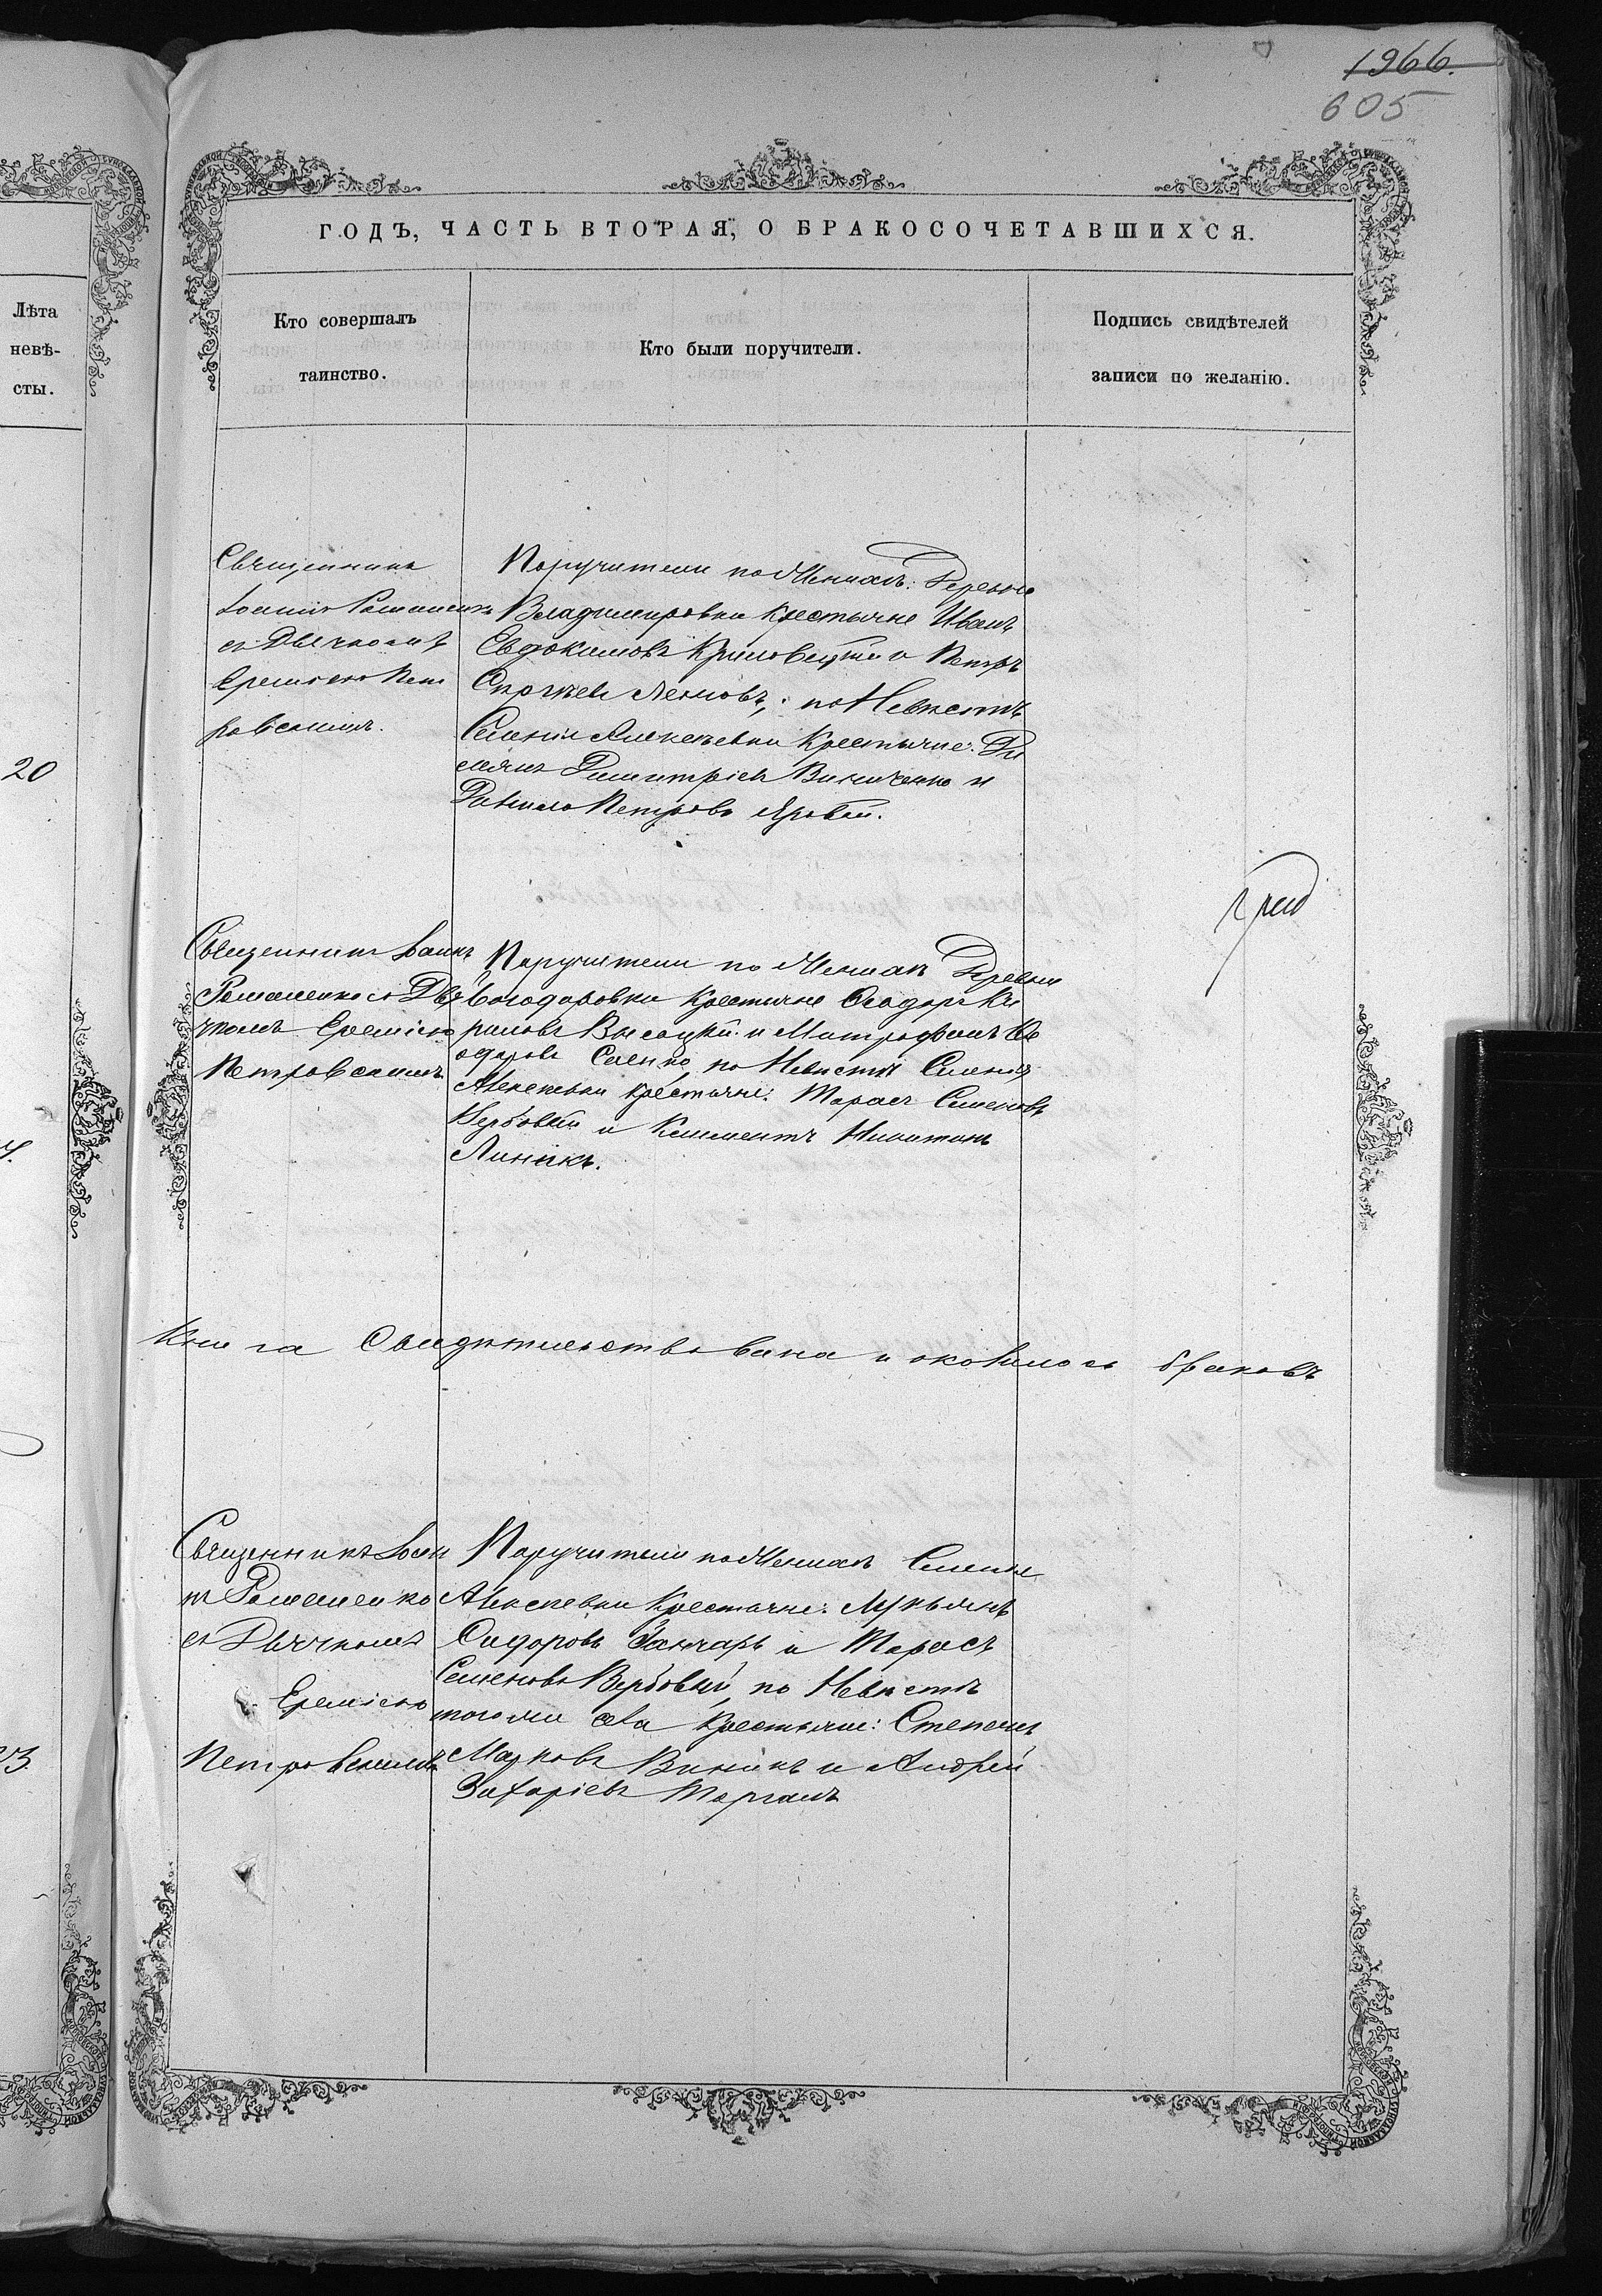 1966.
605
ГОДЪ, ЧАСТЬ ВТОРАЯ, О БРАКОСОЧЕТАВШИХСЯ.
Лѣта
невѣ-
сты.
Кто совершалъ
таинство.
Кто были поручители.
Подпись свидѣтелей
записи по желанію.
20
Священникъ
Іоаннъ Романенко
съ Дьячкомъ
Ереміею Пет
ровскимъ.
Поручители по Женихѣ: Деревни
Владимировки Крестьяне Иванъ
Евдокимовъ и Петръ
по Невѣстѣ
Селенія Алексѣевки Крестьяне: Да
міанъ Димитріевъ Винниченко и
Данило Петровъ Яровый.
Священникъ Іоаннъ
Романенко съ Дья
чкомъ Ереміею
Петровскимъ
Поручители по Женихѣ Деревни
Ѳеодоровки Крестьяне Ѳеодоръ Ки
риловъ Высоцкій и Митрофанъ Ѳе
одоровъ по Невѣстѣ Селенія
Алексѣевки Крестьяне: Тарасъ Семеновъ
Вербовый и Климентъ Никитинъ
Линикъ.
Книга Свидѣтельствована и оковалось браковъ
Священникъ Іоан
нъ Романенко
съ Дьячкомъ
Ереміею
Петровскимъ
Поручители по Женихѣ Селенія
Алексѣевки Крестьяне: Лукьянъ
Сидоровъ Ганчаръ и Тарасъ
Семеновъ Вербовый, по Невѣстѣ
того же села Крестьяне: Степанъ
Марковъ Винникъ и Андрей
Захаріевъ Моргамъ